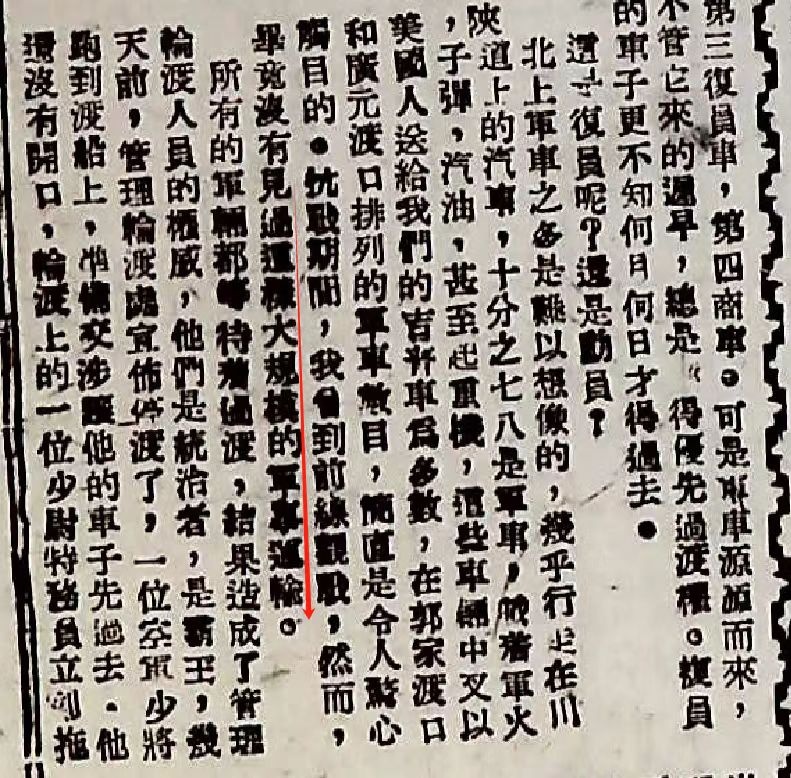 第三復員車，第四商車。可是軍車源源而來，
不管它來的遲早，總是 得優先過渡權。復員
的車子更不知何月何日才得過去。
這 復員呢？還是動員？
北上軍車之多是難以想像的，幾乎行走在川
陝道上的汽車，十分之七八是軍車，載着軍火
，子彈，汽油，甚至起重機，這些車輛中又以
美國人送給我們的吉普車爲多數，在郭家渡口
和廣元渡口排列的軍車數目，簡直是令人驚心
觸目的。抗戰期間，我曾到前線觀戰，然而，
畢竟沒有見過這樣大規模的軍事運輸。
所有的軍輛都等待着過渡，結果造成了管理
輪渡人員的權威，他們是統治者，是霸王，幾
天前，管理輪渡處宣佈停渡了，一位空軍少將
跑到渡船上，準備交涉讓他的車子先過去。他
還沒有開口，輪渡上的一位少尉特務員立刻拖